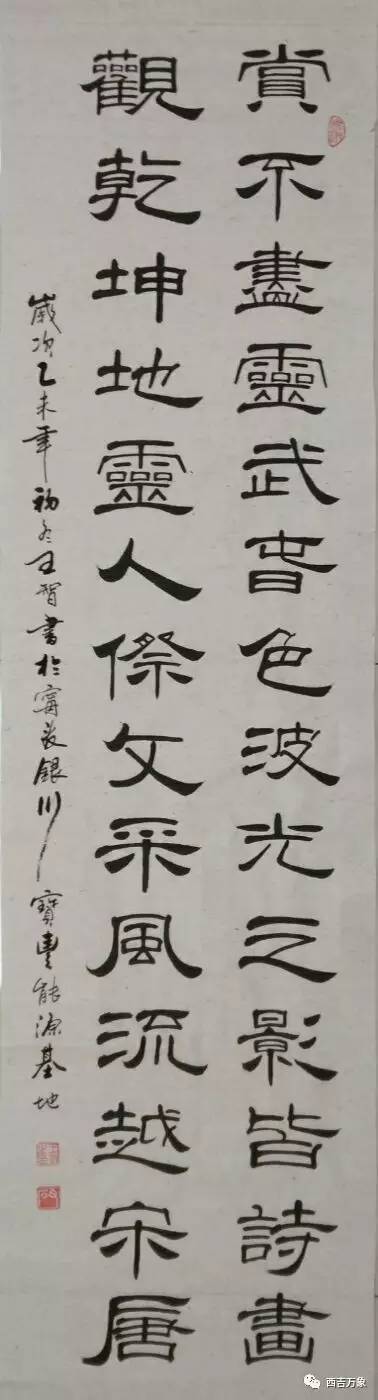 賞不盡靈武春色波光之影皆詩畫
觀乾坤地靈人傑文采風流越宋唐
歲次乙未年初冬王智書於寧夏銀川寶豐能源基地
西吉万象